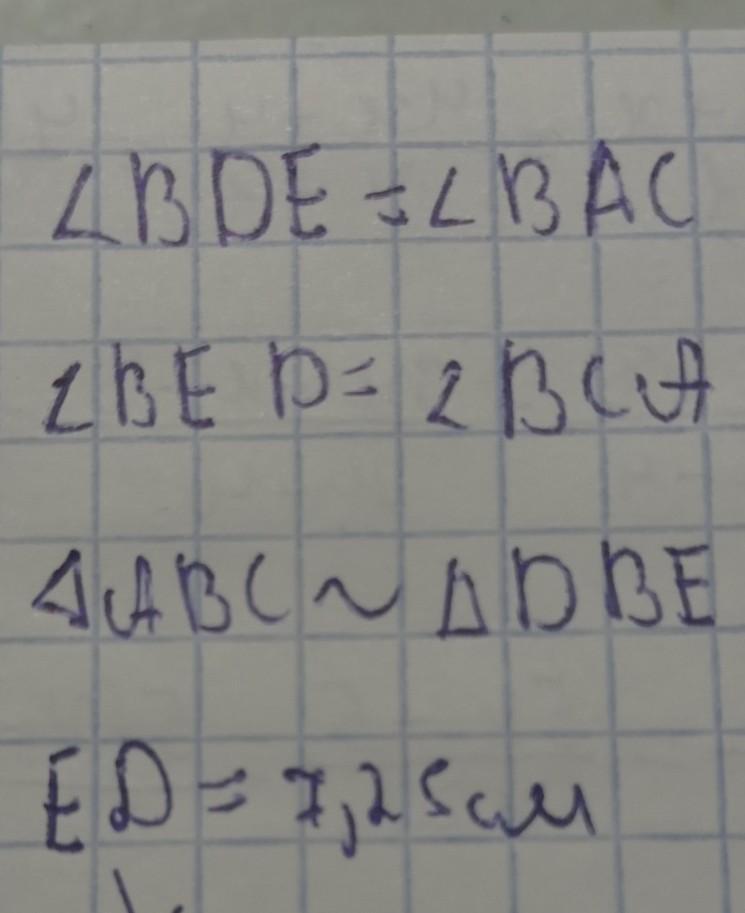 ∠BDE = ∠BAC
∠BED = ∠BCA
ΔABC ~ ΔDBE
ED = 7,25 см